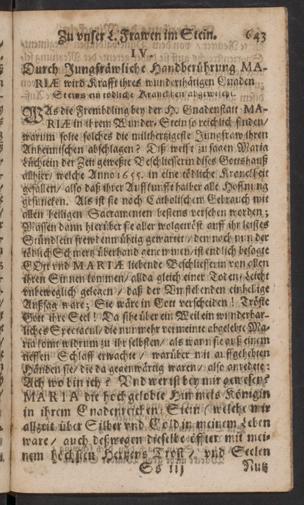 Zu vnser L. Frawen im Stein. 643
IV.
Durch Jungfräwliche Handberührung MA-
RIÆ wird Krafft ihres wunderthätigen Gnaden
Steins ein tödlich Kranckheit abgewendt.
WAs die Frembdling bey der H. Gnadenstatt MA-
RIÆ in ihrem Wunder-Stein so reichlich finden/
warum solte solches die miltherzigeste Jungfraw ihren
Anheimischen abschlagen? Diß weißt zu sagen Maria
der Zeit geweßte Beschliesserin dises Gottshauß
allhier/ welche Anno 1655. in eine tödliche Kranckheit
gefallen/ also daß ihrer Auffkunfft halber alle Hoffnung
Als sie so nach Catholischem Gebrauch mit
allen heiligen Sacramenten bestens versehen worden;
Massen dann hierüber sie aller wolgetröst auff ihr leistes
Stündlein frewdenmühtig gewartet/ den noch nun der
tödlich Schmertz überhand genommen/ ist endlich besagte
GOtt vnd MARIÆ liebende Beschliesserin von allen
ihren Sinnen kommen/ allda gleich einer Todten-Leicht
vnbeweglich gelegen/ daß der Vmstehenden einhelige
Außsag ware; Sie wäre in Gott verscheiden! Tröste
Gott ihre Seel! Da sihe über ein Weil ein wunderbar-
liches Spectacul/ die nunmehr vermeinte abgelebte Ma-
ria kome widrum zu ihr selbsten/ als wann sie auß einem
tieffen Schlaff erwachte/ warüber mit auffgehebten
Händen sie/ die da gegenwärtig waren/ also anredete:
Ach wo bin ich? Vnd wer ist bey mir gewesen?
MARIA die hochgelobte Himmels Königin
in ihrem Gnadenreichen Stein (welche mir
allzeit über Silber vnd Gold in meinem Leben
ware/ auch deßwegen dieselbe öffter/ mit mei-
nem höchsten Hertzens Trost/ vnd Seelen
Ss iij Nutz